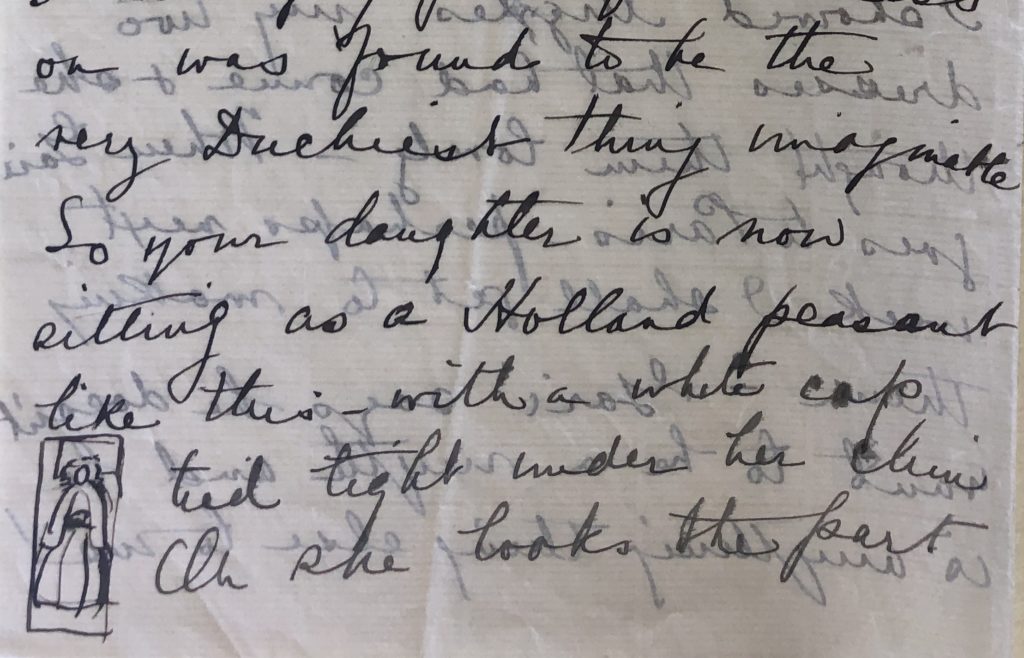 on was found to be the
very Duchiest thing imaginable
So your daughter is now
sitting as a Holland peasant
like this - with a white cap
tied tight under her chin
Oh she looks the part